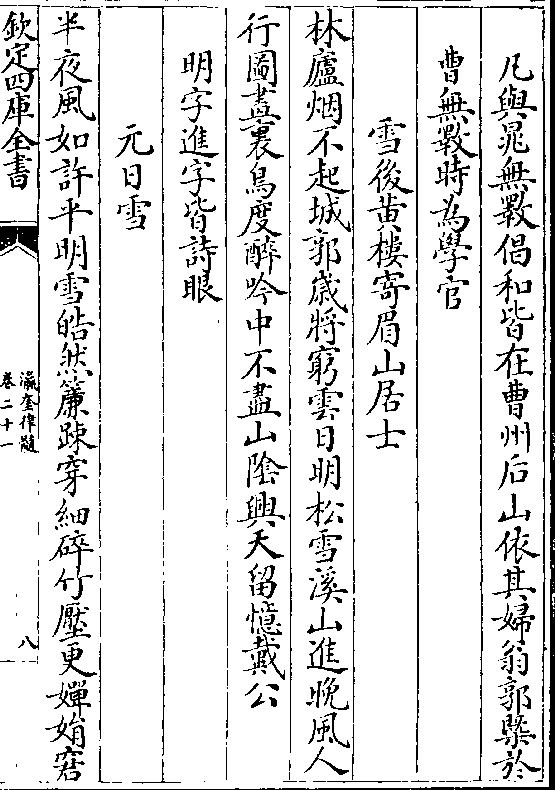 凡與晁無斁倡和皆在曹州后山依其婦翁郭槩於
曹無斁時為學官
雪後黄樓寄眉山居士
林廬烟不起城郭嵗將窮雲日明松雪溪山進晚風人
行圖畫裏鳥度醉吟中不盡山隂興天留憶戴公
明字進字皆詩眼
元日雪
半夜風如許平明雪皓然簾踈穿細碎竹壓更嬋娟窘
欽定四庫全書
瀛奎律髓
卷二十一
八